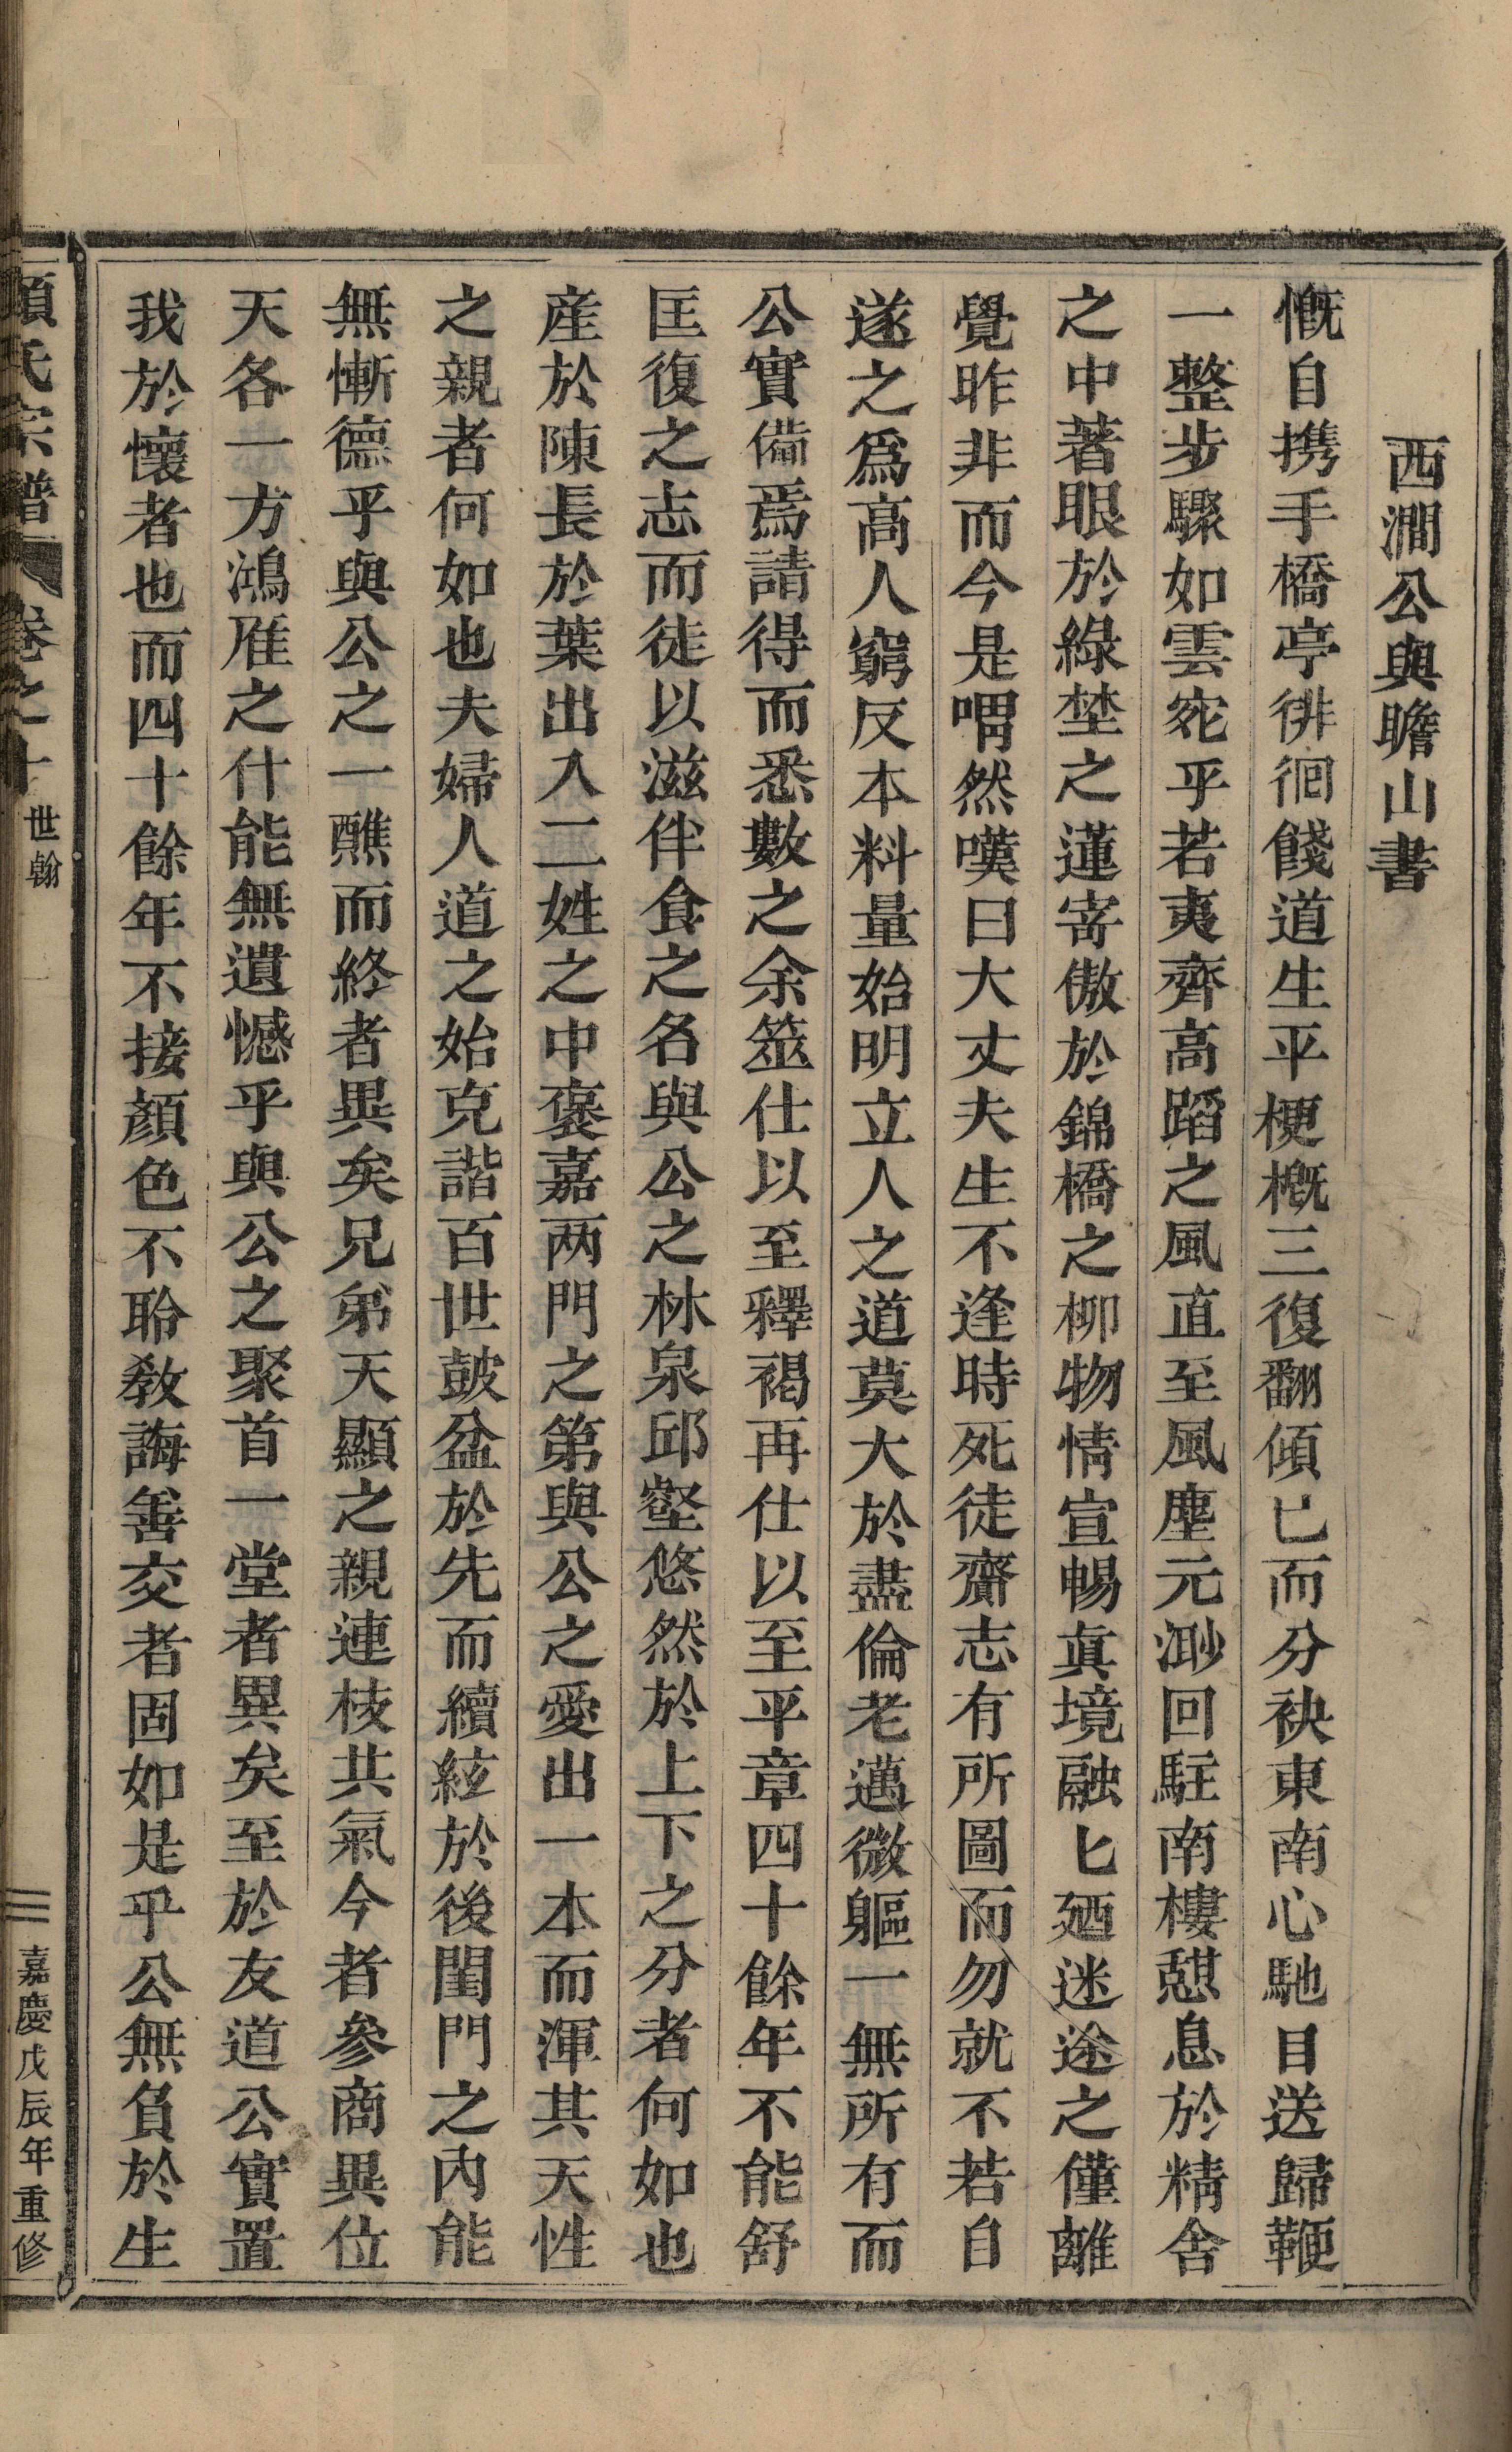 西澗公與瞻山書
慨自携手橋亭徘徊餞道生平梗槪三復翻傾已而分袂東南心馳目送歸鞭
一整步驟如雲宛乎若夷齊高蹈之風直至風塵元渺回駐南樓憇息於精舍
之中著眼於綠埜之蓮寄傲於錦橋之柳物情宣暢眞境融匕廼迷途之僅離
覺昨非而今是喟然嘆曰大丈夫生不逢時死徒齎志有所圖而勿就不若自
遂之爲高人窮反本料量始明立人之道莫大於盡倫老邁微軀一無所有而
公實備焉請得而悉數之余筮仕以至釋褐再仕以至平章四十餘年不能舒
匡復之志而徒以滋伴食之名與公之林泉邱壑悠然於上下之分者何如也
產於陳長於葉出入二姓之中褒嘉两門之第與公之愛出一本而渾其天性
之親者何如也夫婦人道之始克諧百世鼓盆於先而續絃於後閨門之內能
無慚德乎與公之一醮而終者異矣兄弟天顯之親連枝共氣今者參商異位
天各一方鴻雁之什能無遺憾乎與公之聚首一堂者異矣至於友道公實置
我於懷者也而四十餘年不接顏色不聆教誨善交者固如是乎公無負於生
項氏宗譜 卷之十 世翰 三 嘉慶戊辰年重修